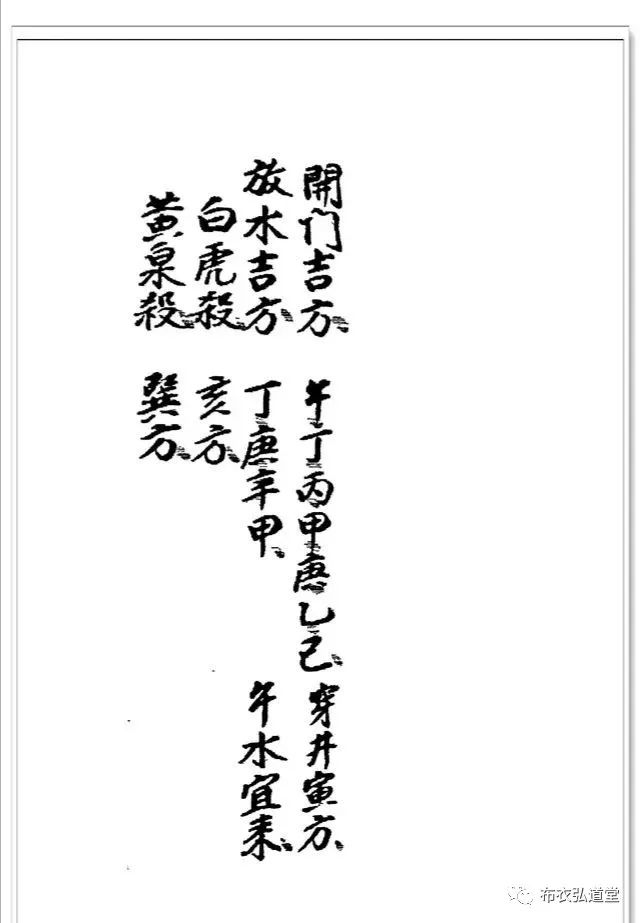 開门吉方 午丁丙甲庚乙已 穿井寅方
放水吉方 丁庚辛甲 午水宜来
白虎殺 亥方
黃泉殺 巽方
布衣弘道堂